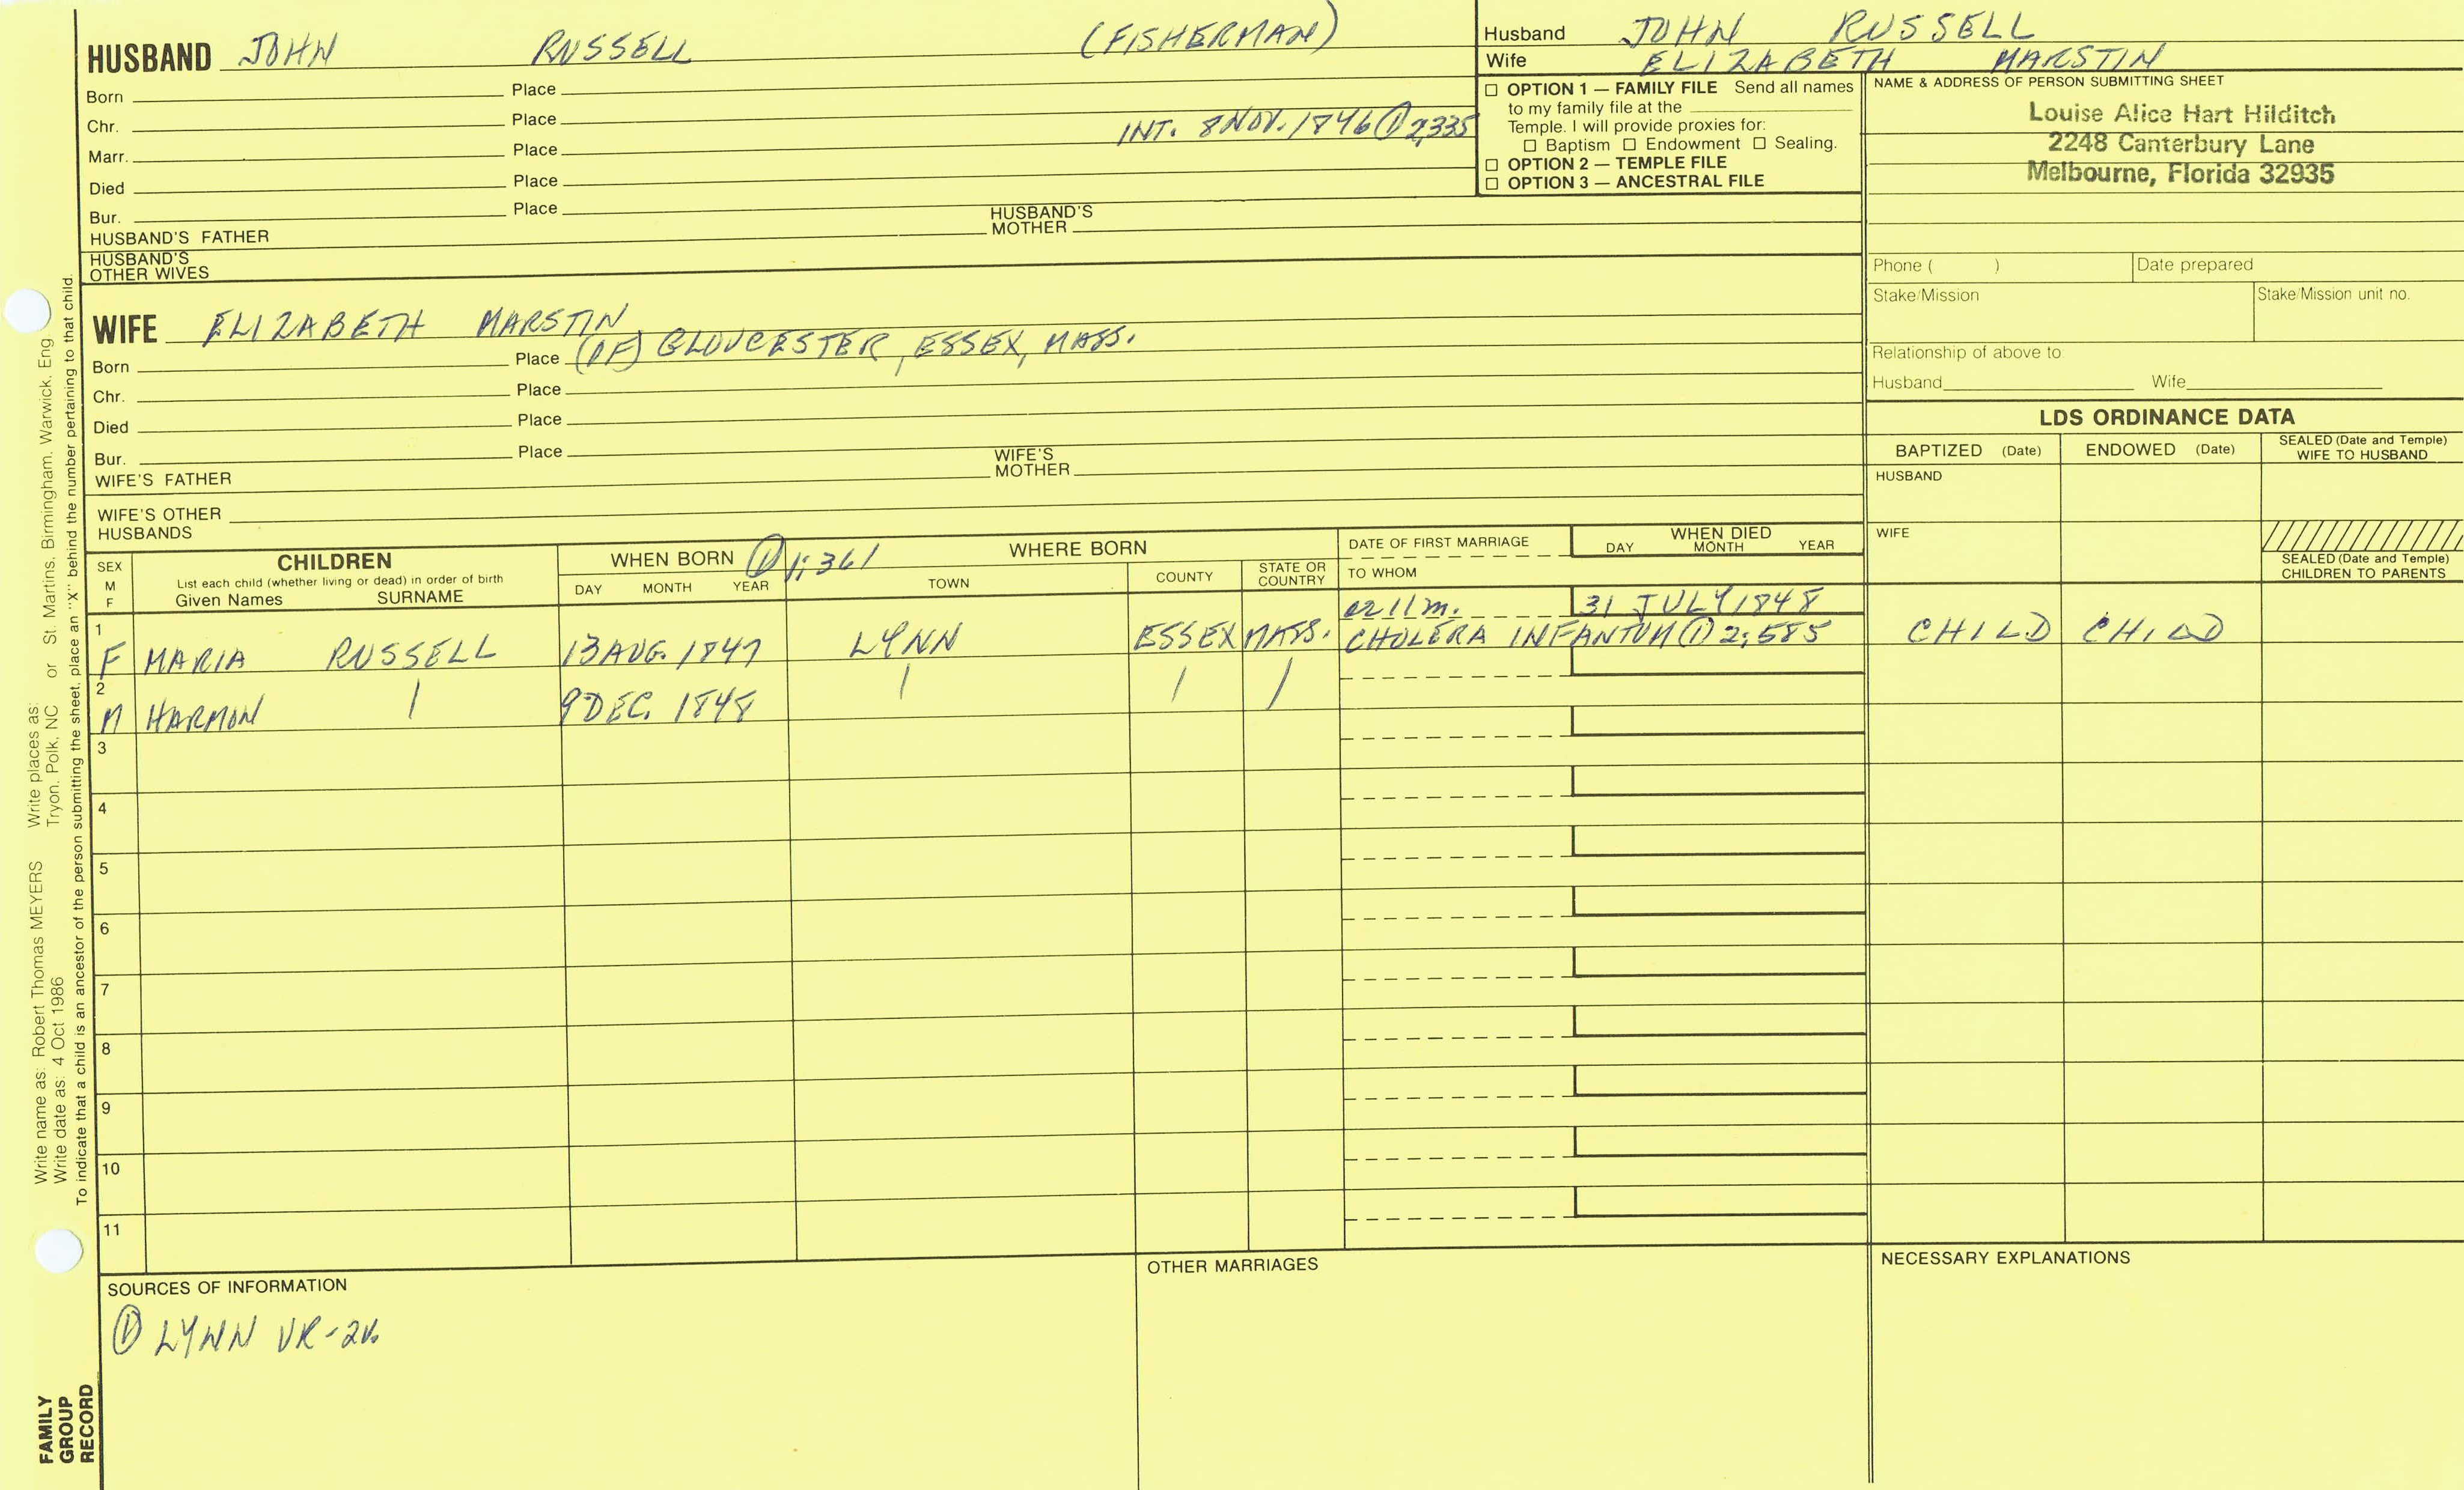 HUSBAND JOHN RUSSELL (FISHERMAN)
Born Place
Chr. Place
Marr. Place INT. 8 NOV. 1846 ① 2;335
Died Place
Bur. Place
HUSBAND'S FATHER HUSBAND'S MOTHER
HUSBAND'S OTHER WIVES
Husband JOHN RUSSELL
Wife ELIZABETH MARSTIN
☐ OPTION 1 — FAMILY FILE Send all names
to my family file at the
Temple. I will provide proxies for:
☐ Baptism ☐ Endowment ☐ Sealing.
☐ OPTION 2 — TEMPLE FILE
☐ OPTION 3 — ANCESTRAL FILE
NAME & ADDRESS OF PERSON SUBMITTING SHEET
Louise Alice Hart Hilditch
2248 Canterbury Lane
Melbourne, Florida 32935
Phone ( ) Date prepared
Stake/Mission Stake/Mission unit no.
Relationship of above to
Husband Wife
WIFE ELIZABETH MARSTIN
Born Place (OF) GLOUCESTER, ESSEX, MASS.
Chr. Place
Died Place
Bur. Place
WIFE'S FATHER WIFE'S MOTHER
WIFE'S OTHER HUSBANDS
LDS ORDINANCE DATA
BAPTIZED (Date) ENDOWED (Date) SEALED (Date and Temple) WIFE TO HUSBAND
HUSBAND
WIFE
SEALED (Date and Temple) CHILDREN TO PARENTS
SEX M F
CHILDREN
List each child (whether living or dead) in order of birth
Given Names SURNAME
WHEN BORN ① 1;361 WHERE BORN
DAY MONTH YEAR TOWN COUNTY STATE OR COUNTRY
DATE OF FIRST MARRIAGE
TO WHOM
WHEN DIED
DAY MONTH YEAR
1 ae 11m. 31 JULY 1848
F MARIA RUSSELL 13 AUG. 1847 LYNN ESSEX MASS. CHOLERA INFANTUM ① 2;585 CHILD CHILD
2
M HARMON | 9 DEC. 1848 | | |
3
4
5
6
7
8
9
10
11
SOURCES OF INFORMATION
① LYNN VR-2v.
OTHER MARRIAGES
NECESSARY EXPLANATIONS
Write name as: Robert Thomas MEYERS Write places as:
Write date as: 4 Oct 1986 Tryon, Polk, NC or St. Martins, Birmingham, Warwick, Eng.
To indicate that a child is an ancestor of the person submitting the sheet, place an "X" behind the number pertaining to that child.
FAMILY
GROUP
RECORD